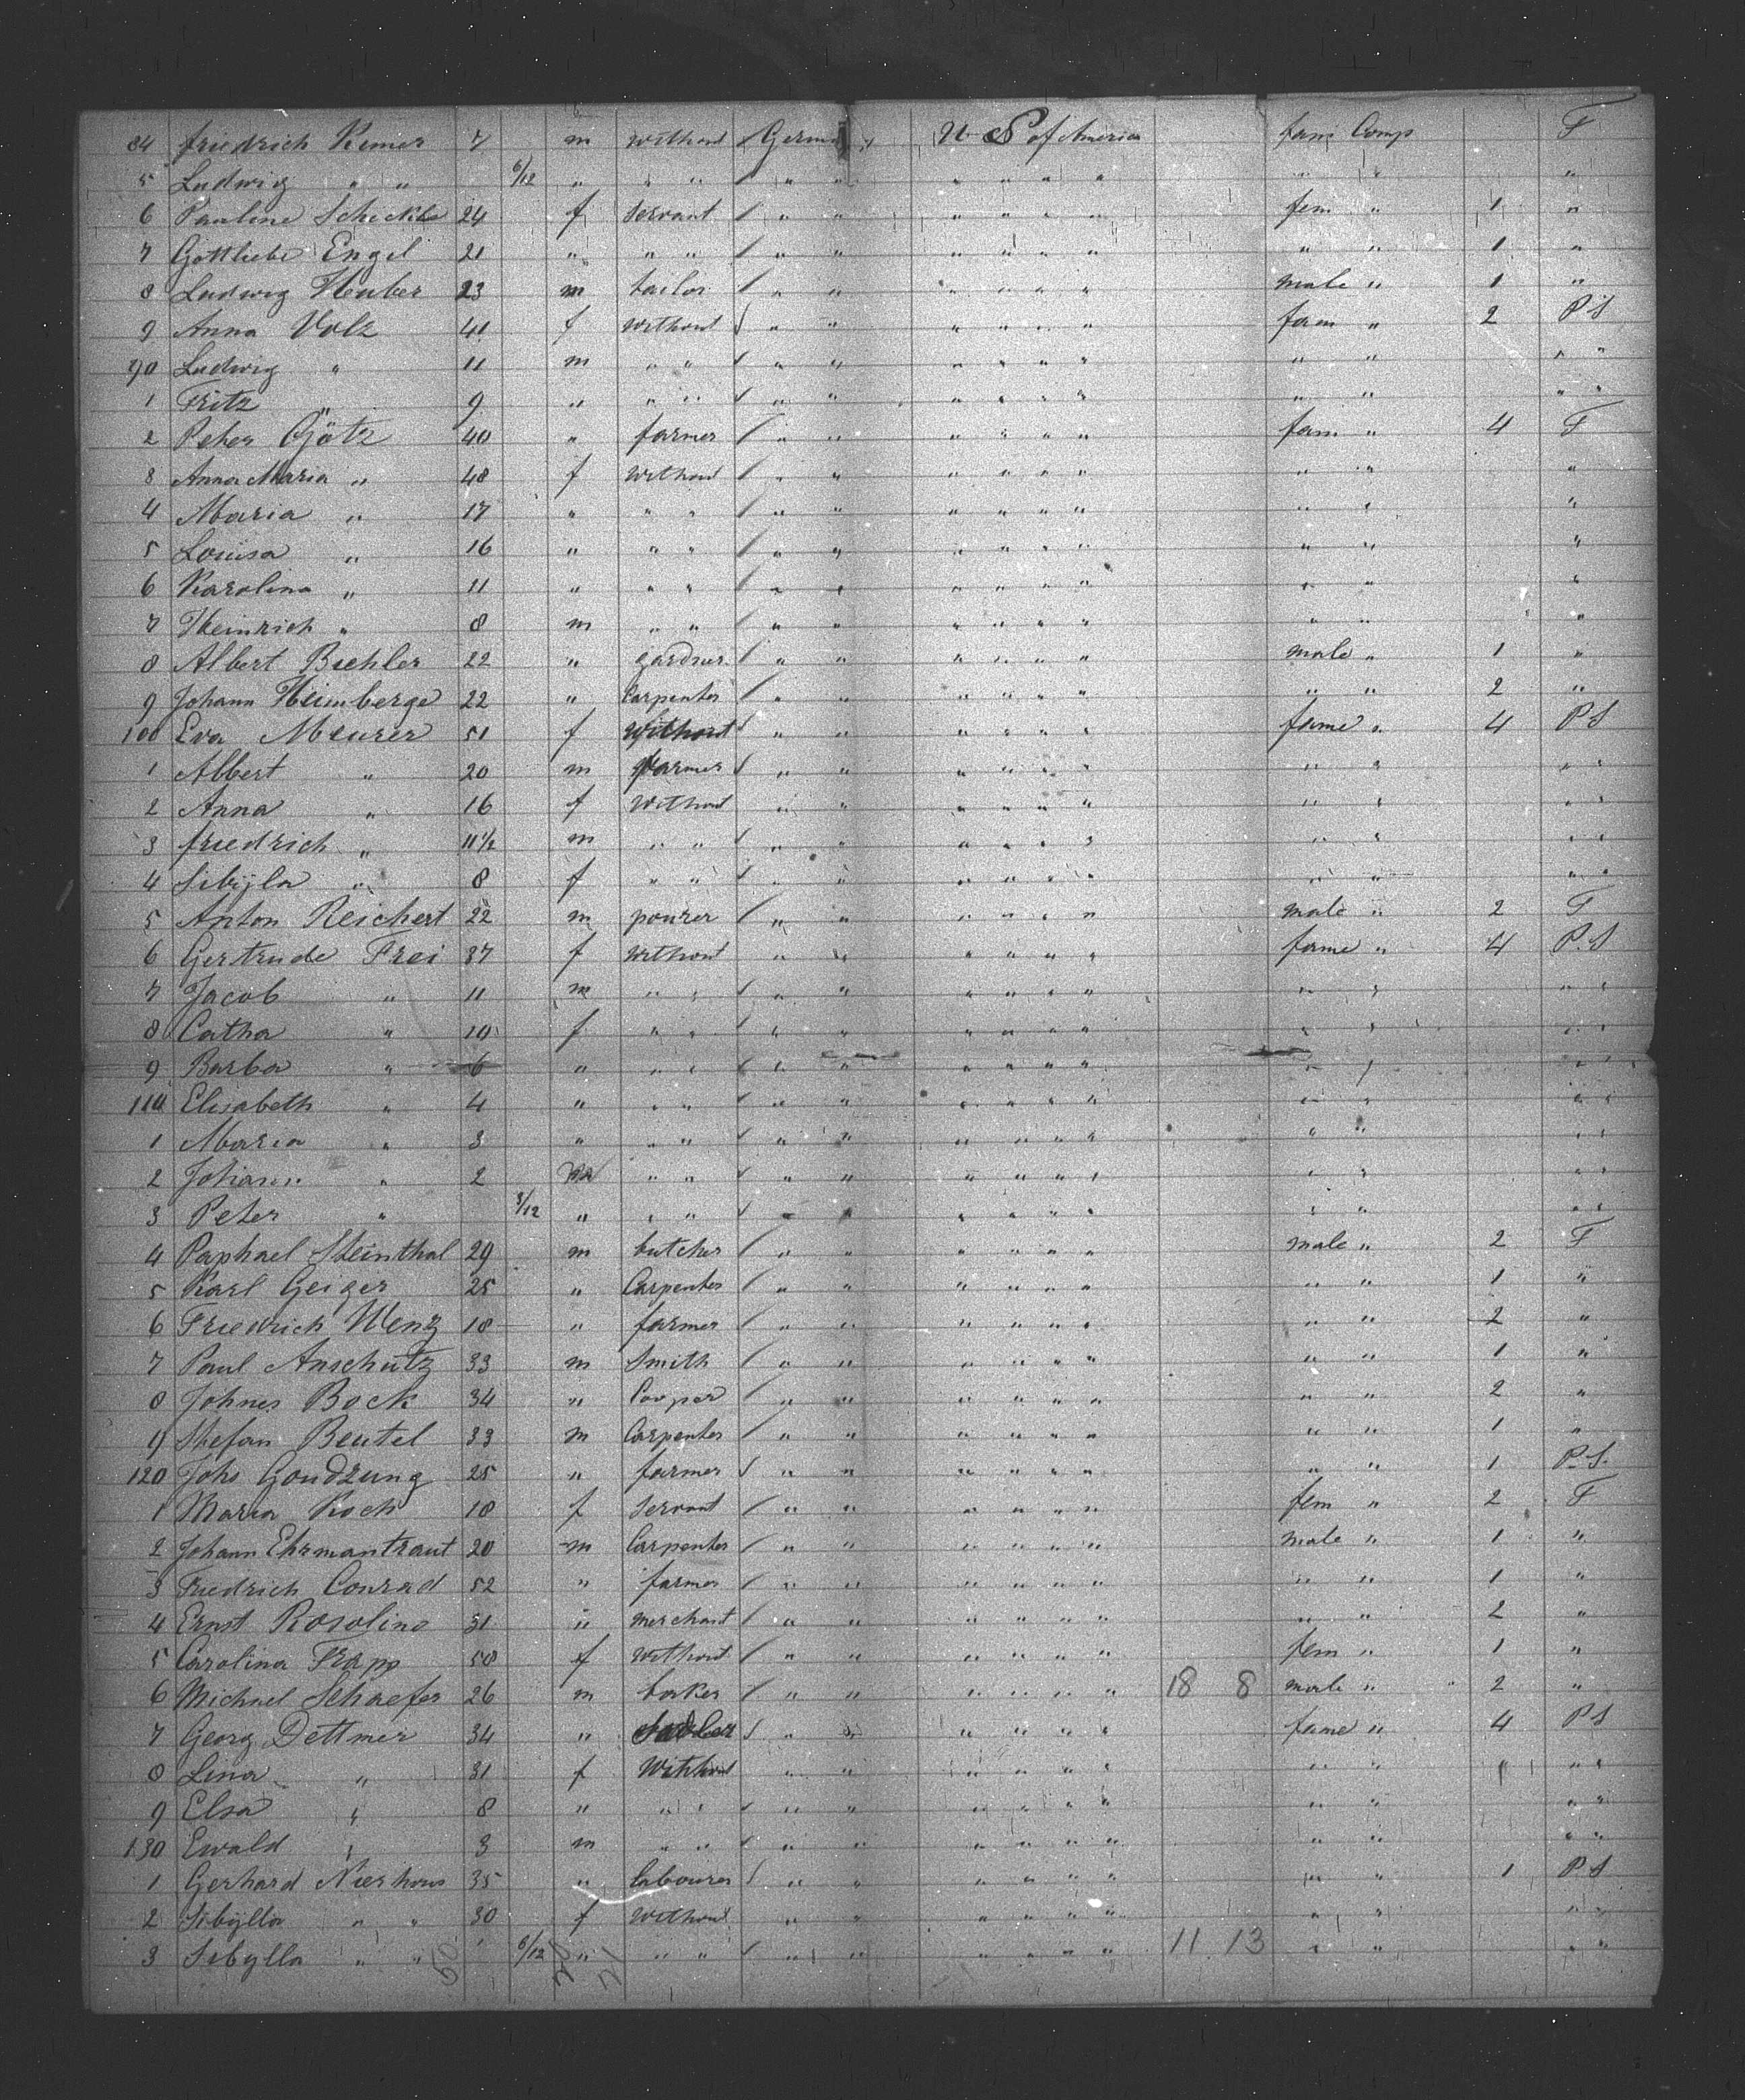 84 friedrich Kemer 7 m without Germany U S of America fam Comp F
5 Ludwig " " 6/12 " " " " " " " " " " " "
6 Pauline Schickle 24 f servant " " " " " " fem " 1 "
7 Gottliebe Engel 21 " " " " " " " " " " " 1 "
8 Ludwig Heuber 23 m tailor " " " " " " male " 1 "
9 Anna Volz 41 f without " " " " " " fam " 2 P S
90 Ludwig " 11 m " " " " " " " " " " " "
1 Fritz 9 " " " " " " " " " " " " "
2 Peter Götz 40 " farmer " " " " " " fam " 4 F
3 Anna Maria " 48 f without " " " " " " " " "
4 Maria " 17 " " " " " " " " " " " "
5 Louisa " 16 " " " " " " " " " " " "
6 Karolina " 11 " " " " " " " " " " " "
7 Heinrich " 8 m " " " " " " " " " " "
8 Albert Buehler 22 " gardner " " " " " " male " 1 "
9 Johann Heimberge 22 " Carpenter " " " " " " " " 2 "
100 Eva Meurer 51 f without " " " " " " fame " 4 P S
1 Albert " 20 m farmer " " " " " " " " " "
2 Anna " 16 f without " " " " " " " " " "
3 friedrich " 11 1/2 m " " " " " " " " " " " "
4 Sibÿla " 8 f " " " " " " " " " " " "
5 Anton Reichert 22 m pourer " " " " " " male " 2 F
6 Gertrude Frei 37 f without " " " " " " fame " 4 P. S
7 Jacob " 11 m " " " " " " " " " " " "
8 Catha " 10 f " " " " " " " " " " " "
9 Barba " 6 " " " " " " " " " " " " "
110 Elisabeth " 4 " " " " " " " " " " " " "
1 Maria " 3 " " " " " " " " " " " " "
2 Johann " 2 m " " " " " " " " " " " "
3 Peter " 3/12 " " " " " " " " " " " " "
4 Raphael Steinthal 29 m butcher " " " " " " male " 2 F
5 Karl Geiger 25 " Carpenter " " " " " " " " 1 "
6 Friedrich Wenz 18 " farmer " " " " " " " " 2 "
7 Paul Anschütz 33 m Smith " " " " " " " " 1 "
8 Johnes Bock 34 " Cooper " " " " " " " " 2 "
9 Stefan Beutel 33 m Carpenter " " " " " " " " 1 "
120 Johs Goudzung 25 " farmer " " " " " " " " 1 P. S.
1 Maria Koch 18 f servant " " " " " " fem " 2 F
2 Johann Ehrmantraut 20 m Carpenter " " " " " " male " 1 "
3 Friedrich Conrad 52 " farmer " " " " " " " " 1 "
4 Ernst Rosolino 31 " merchant " " " " " " " " 2 "
5 Carolina Trapp 50 f without " " " " " " fem " 1 "
6 Michael Schaefer 26 m baker " " " " " " 18 8 male " 2 "
7 Georg Dettmer 34 " Sadler " " " " " " fame " 4 P S
8 Lina " 31 f Without " " " " " " " " " "
9 Elsa " 8 " " " " " " " " " " " " "
130 Ewald " 3 m " " " " " " " " " " " "
1 Gerhard Nierhous 35 " labourer " " " " " " " " 1 P S
2 Sibÿlla " " 30 f without " " " " " " " " " "
3 Sibylla " " 6/12 " " " " " " " " " 11 13 " " " "